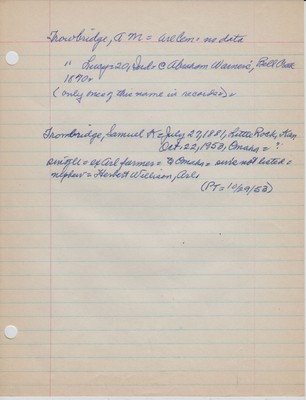 Trowbridge, A M = Arl Cem = no data
" Lucy = 20, Ind = @ Abraham Warner's, Bell Creek
1870 =
(only ones of this name in records) =
Trombridge, Samuel K = July 27, 1881, Little Rock, Ark
Oct. 22, 1953, Omaha = ?
single = ex Arl farmer = to Omaha = survs not listed =
nephew = Herbert Willison, Arl =
(PT = 10/29/53)